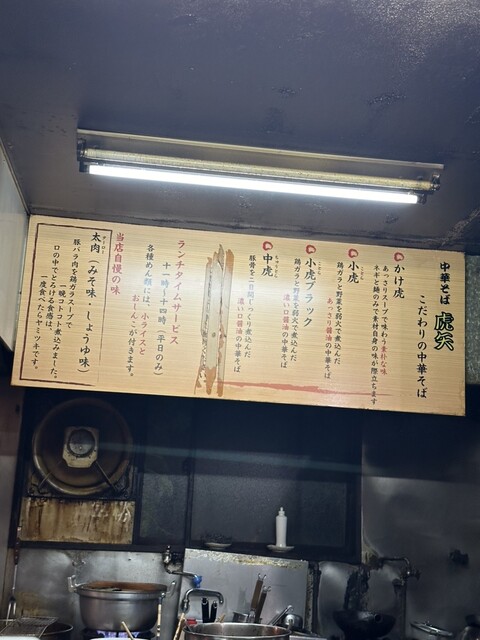 中華そば 虎矢
こだわりの中華そば
かけ虎
あっさりスープで味わう素朴な味
ネギと麺のみで素材自身の味が際立ちます
小虎
鶏ガラと野菜を弱火で煮込んだ
あっさり醤油の中華そば
小虎ブラック
鶏ガラと野菜を弱火で煮込んだ
濃い口醤油の中華そば
中虎
豚骨を二日間じっくり煮込んだ
濃い口醤油の中華そば
ランチタイムサービス
十一時〜十四時(平日のみ)
各種めん類には、小ライスと
おしんこが付きます。
当店自慢の味
太肉(みそ味・しょうゆ味)
豚バラ肉を鶏ガラスープで
一晩コトコト煮込みました。
口の中でとろける食感は、
一度食べたらヤミツキです。